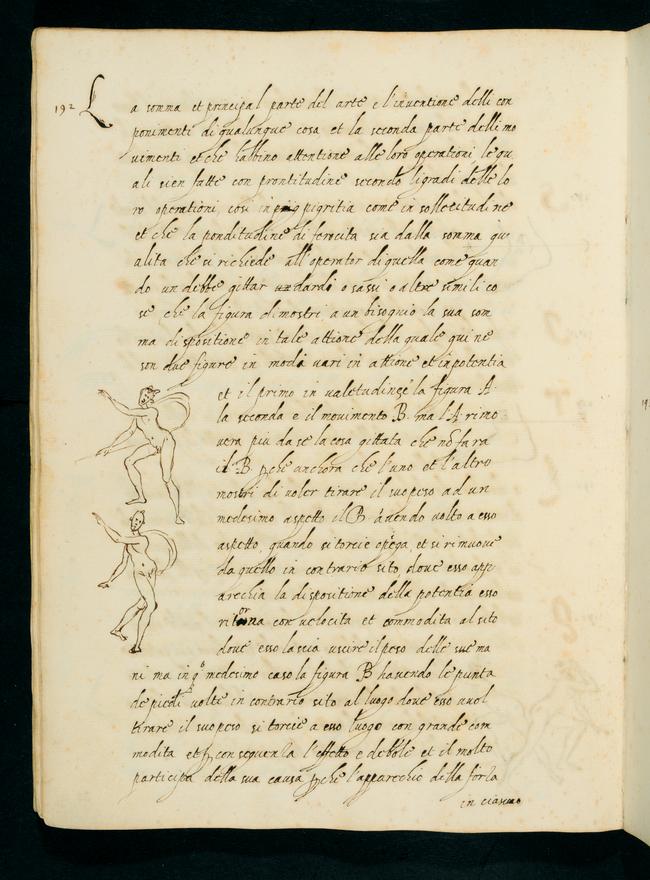 192 La somma et principal parte del arte e l'inventione delli con
ponimenti di qualunque cosa et la seconda parte delli mo
vimenti et che habbino attentione alle loro operationi le qu
ali sien fatte con prontitudine secondo li gradi delle lo
ro operationi, cosi in pigritia come in sollecitudine
et che la ponditudine di ferocita sia dalla somma qu
alita che si richiede all'operator di quella come quan
do un debbe gittar dardi o sassi o altre simili co
se che la figura dimostri, a un bisognio la sua som
ma dispositione in tale attione della quale qui ne
son due figure in modi vari in attione et in potentia
et il primo in valetudine é la figura A.
la seconda e il movimento B. ma l'A rimo
vera piu da se la cosa gittata che nō fara
il B. pche anchora che l'uno et l'altro
mostri di voler tirare il suo peso ad un
medesimo aspetto il B avendo volto a esso
aspetto, quando si torcie e piega, et si rimuove
da quello in contrario sito, dove esso app
arechia la dispositione della potentia esso
ritorna con velocita et commodita al sito
dove esso lascia uscire il peso delle sue ma
ni ma in qo medesimo caso la figura B havendo le punta
de piedi volte in contrario sito al luogo dove esso vuol
tirare il suo peso si torcie a esso luogo con grande com
modita et p conseguenza l'effetto e debbole et il moto
participa della sua causa pche l'apparechio della forza
in ciascuno